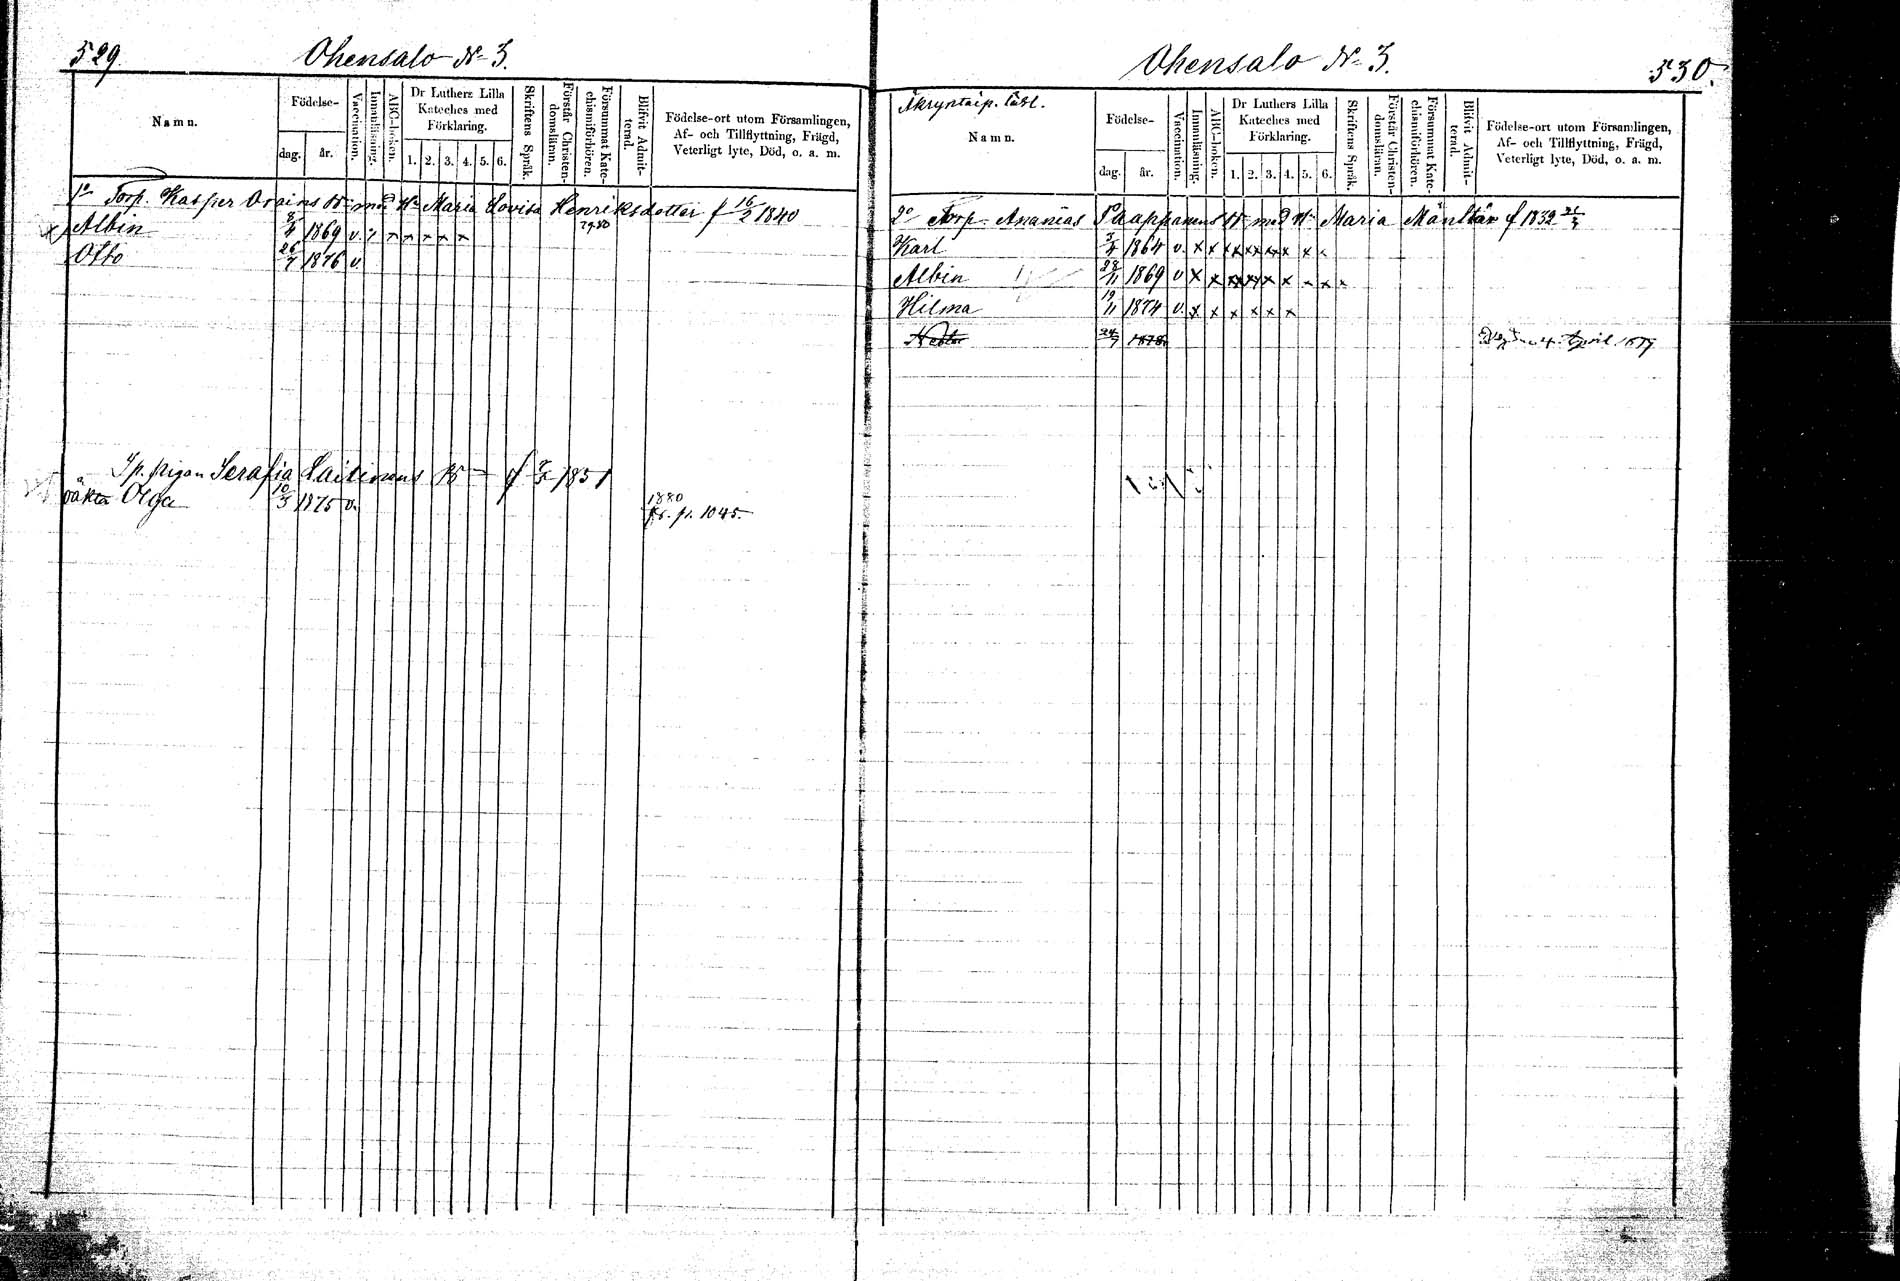 529.
Ohensalo No 3.
Namn.
Födelse-
dag. år.
Vaccination.
Innanläsning.
ABC-boken.
Dr Luthers Lilla Kateches med Förklaring.
1. 2. 3. 4. 5. 6.
Skriftens Språk.
Förstår Christendomsläran.
Försummat Katechismiförhören.
Blifvit Admitterad.
Födelse-ort utom Församlingen,
Af- och Tillflyttning, Frägd,
Veterligt lyte, Död, o. a. m.
1o Torp. Kasper med Maria Lovisa Henriksdotter f 16/2 1840
79.80
x Albin 1869 v. x x x x x x
Otto 26/7 1876 v.
Sp. pigan Serafia Laitinens f 1851
oäkta Olga 10/3 1875 v.
1880
fr. p. 1045.
Ohensalo No 3.
530.
Namn.
Födelse-
dag. år.
Vaccination.
Innanläsning.
ABC-boken.
Dr Luthers Lilla Kateches med Förklaring.
1. 2. 3. 4. 5. 6.
Skriftens Språk.
Förstår Christendomsläran.
Försummat Katechismiförhören.
Blifvit Admitterad.
Födelse-ort utom Församlingen,
Af- och Tillflyttning, Frägd,
Veterligt lyte, Död, o. a. m.
2o Torp. Ananias Paappanens med Maria f 1832
Karl 1864 v. x x x x x x x x
Albin 28/11 1869 v x x x x x x x x x
Hilma 19/11 1874 v. x x x x x x
1878 4 April 1879